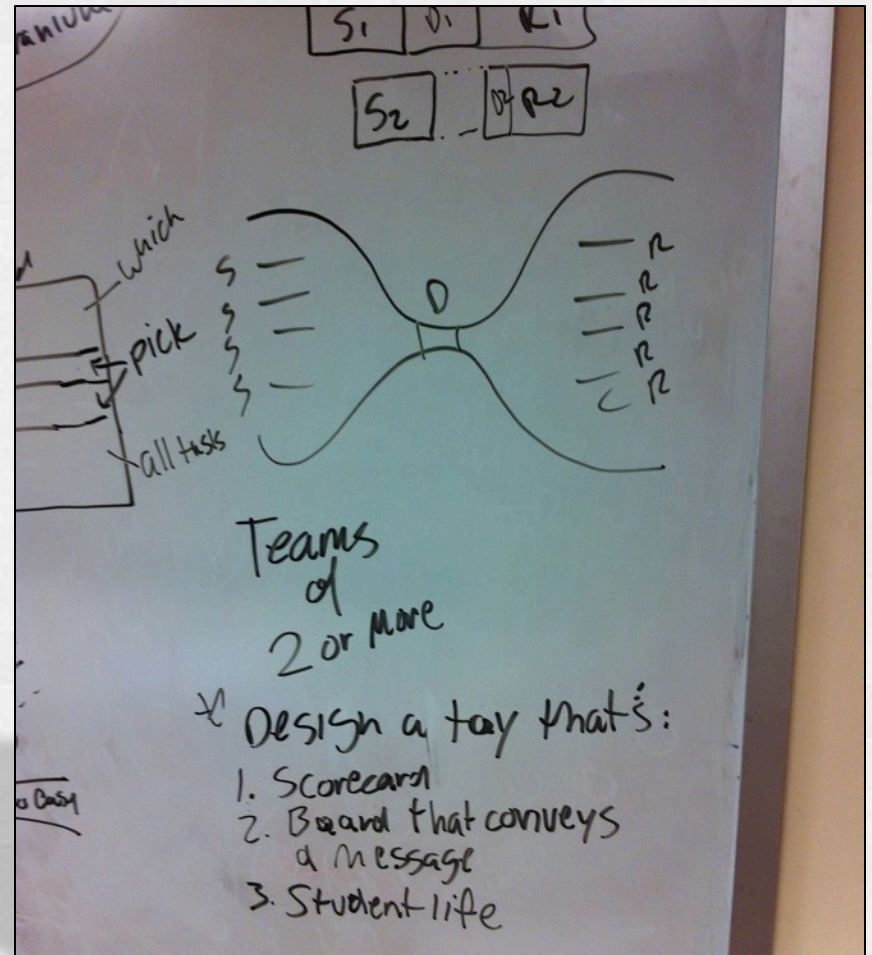 S1 D1 R1
S2 D2 R2
which
pick
all tasks
D
S
S
S
S
R
R
R
R
R
Teams
of
2 or More
Design a toy that's:
1. Scorecard
2. Board that conveys
a message
3. Student life